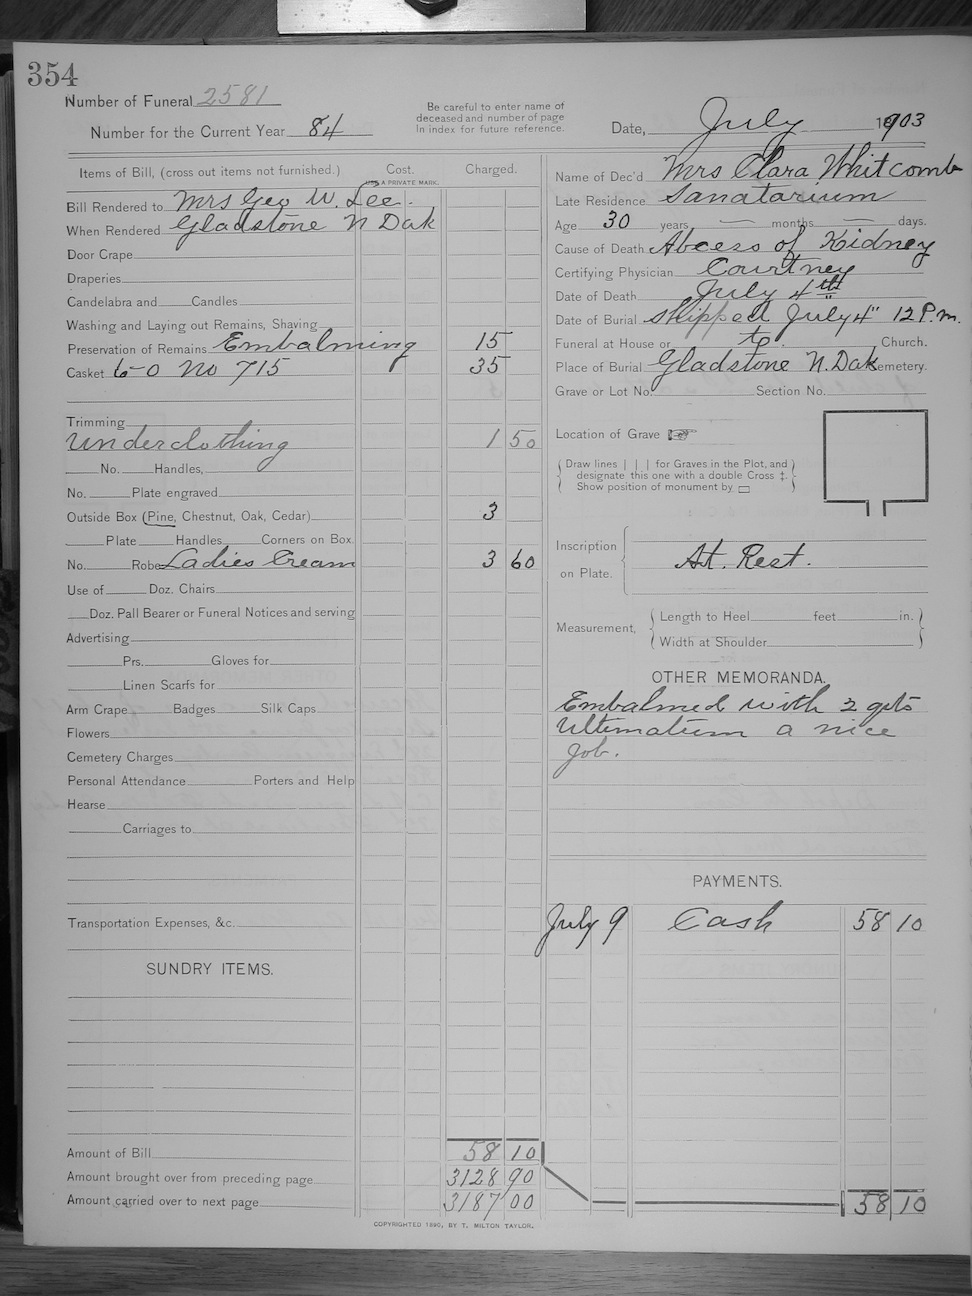 354
Number of Funeral 2581
Number for the Current Year 84
Be careful to enter name of
deceased and number of page
in index for future reference.
Date, July 1903
Items of Bill, (cross out items not furnished.)
Cost.
USE A PRIVATE MARK.
Charged.
Bill Rendered to Mrs Geo W. Lee.
When Rendered Gladstone N Dak
Door Crape
Draperies
Candelabra and Candles
Washing and Laying out Remains, Shaving
Preservation of Remains Embalming 15
Casket 6-0 No 715 35
Trimming
Underclothing 1 50
No. Handles,
No. Plate engraved
Outside Box (Pine, Chestnut, Oak, Cedar) 3
Plate Handles Corners on Box.
No. Robe Ladies Cream 3 60
Use of Doz. Chairs
Doz. Pall Bearer or Funeral Notices and serving
Advertising
Prs. Gloves for
Linen Scarfs for
Arm Crape Badges Silk Caps
Flowers
Cemetery Charges
Personal Attendance Porters and Help
Hearse
Carriages to
Transportation Expenses, &c.
SUNDRY ITEMS.
Amount of Bill 58 10
Amount brought over from preceding page 3128 90
Amount carried over to next page 3187 00
Name of Dec'd Mrs Clara Whitcomb
Late Residence Sanatarium
Age 30 years, — months, — days.
Cause of Death Abcess of Kidney
Certifying Physician Courtney
Date of Death July 4th
Date of Burial Shipped July 4" 12 P.m.
Funeral at House or to Church.
Place of Burial Gladstone N. Dak Cemetery.
Grave or Lot No. Section No.
Location of Grave ☞
Draw lines | | | for Graves in the Plot, and
designate this one with a double Cross ‡.
Show position of monument by ▭
Inscription
on Plate. At. Rest.
Measurement, Length to Heel feet in.
Width at Shoulder
OTHER MEMORANDA.
Embalmed with 2 qts
Ultimatum a nice
job.
PAYMENTS.
July 9 Cash 58 10
58 10
COPYRIGHTED 1890, BY T. MILTON TAYLOR.